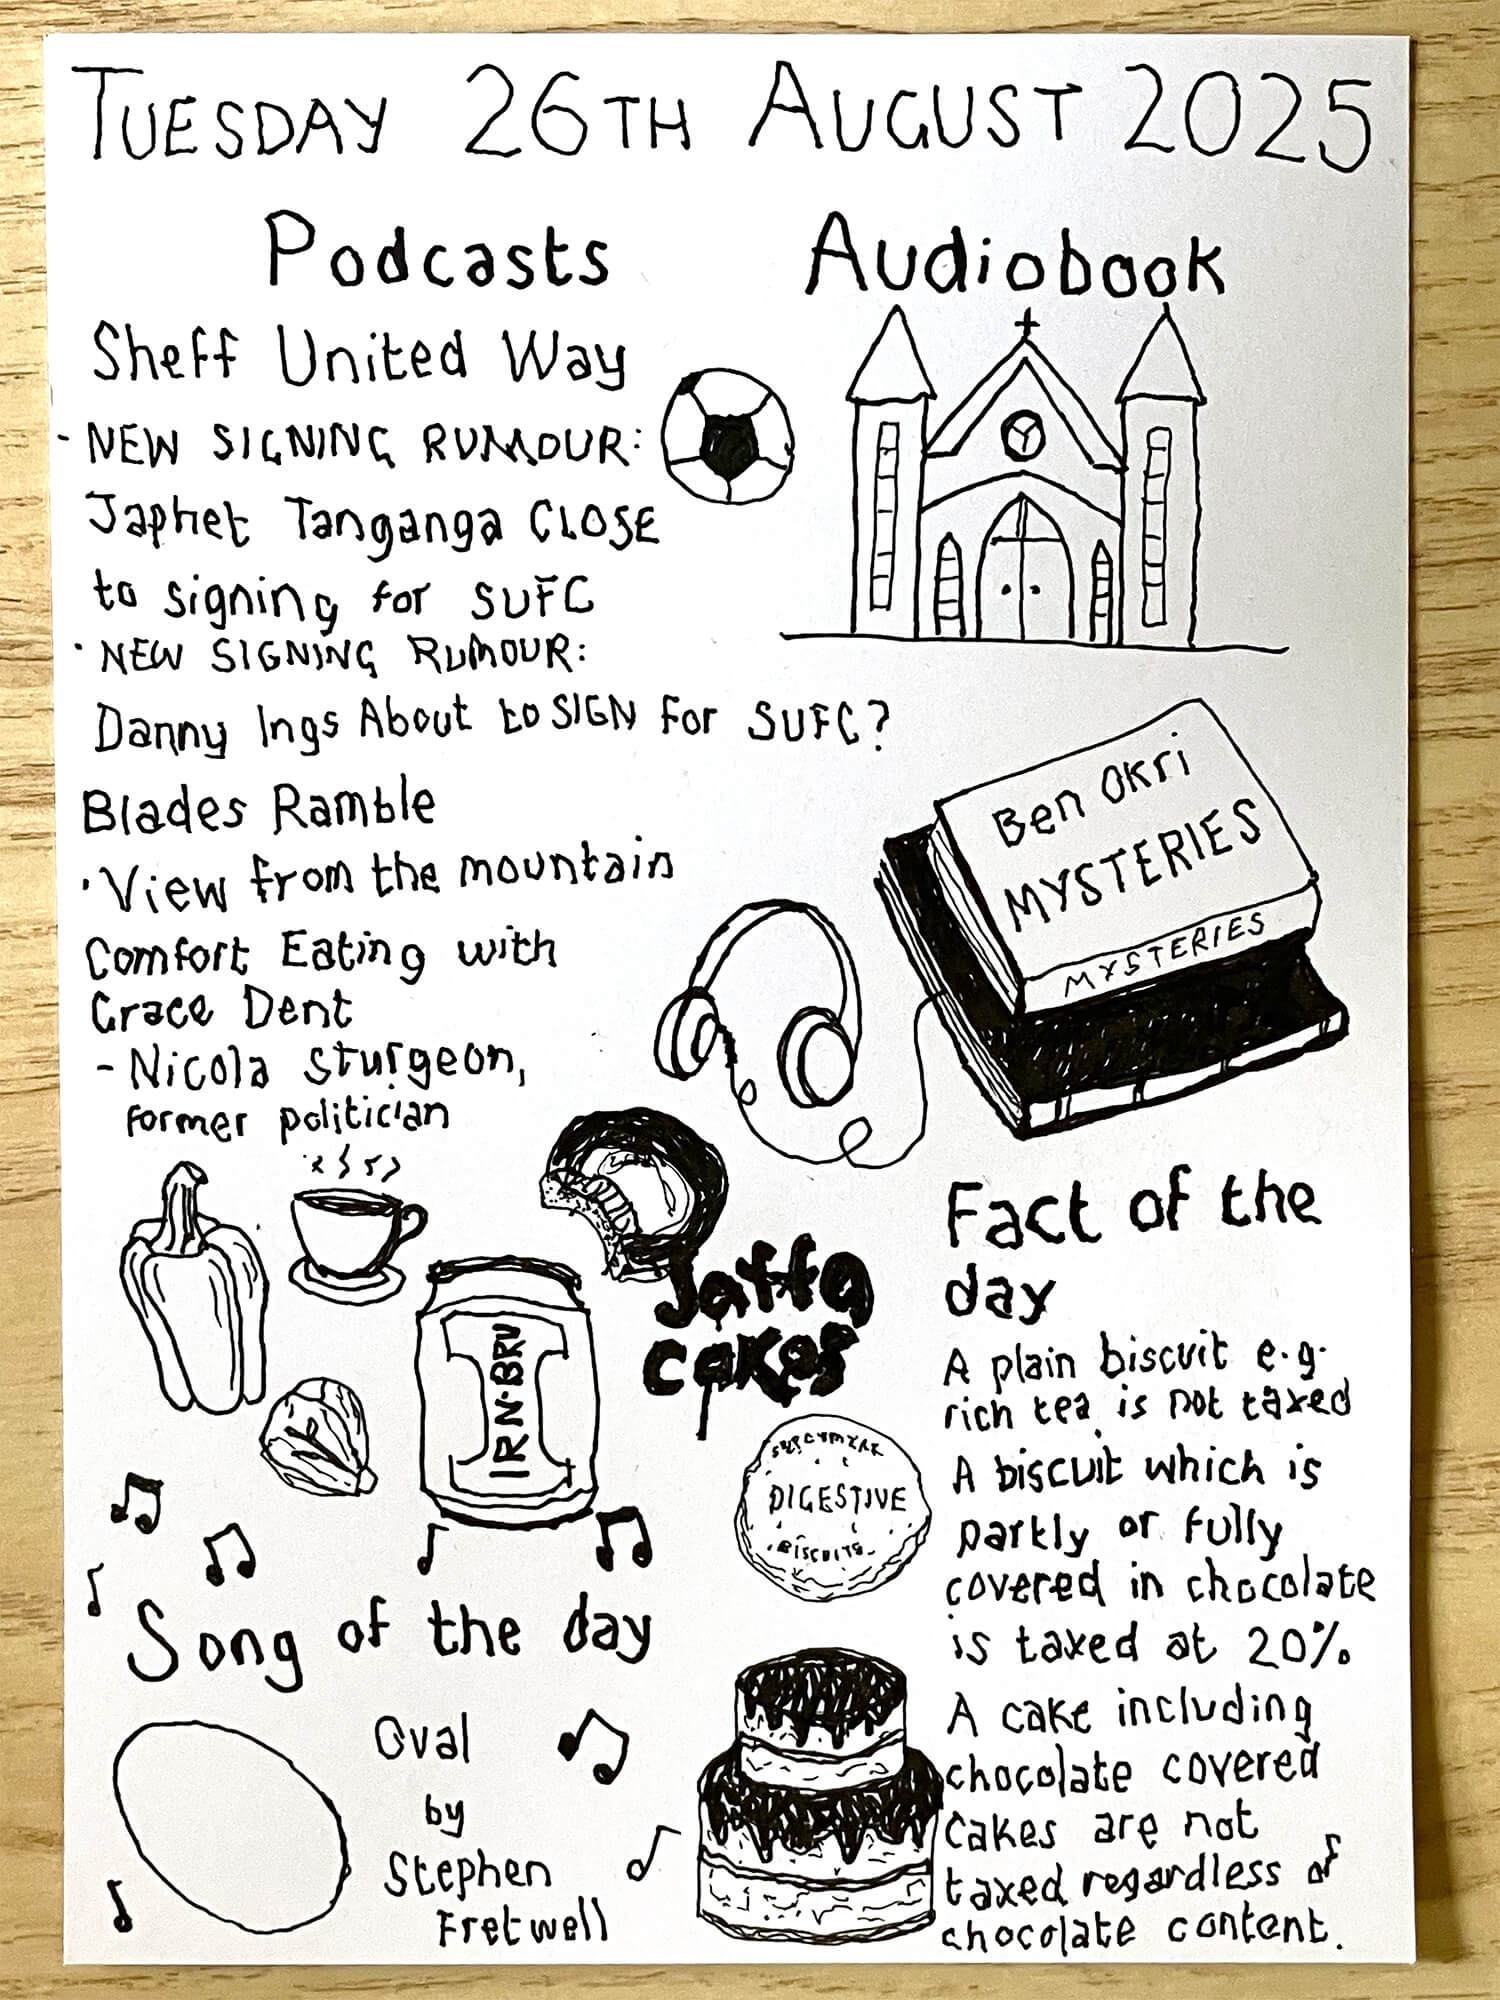 TUESDAY 26TH AUGUST 2025
Podcasts
Sheff United Way
- NEW SIGNING RUMOUR:
Japhet Tanganga CLOSE
to signing for SUFC
· NEW SIGNING RUMOUR:
Danny Ings About to SIGN for SUFC?
Blades Ramble
· View from the mountain
Comfort Eating with
Grace Dent
- Nicola Sturgeon,
former politician
IRN-BRU
Jaffa
cakes
Song of the day
Oval
by
Stephen
Fretwell
Audiobook
Ben Okri
MYSTERIES
MYSTERIES
Fact of the
day
A plain biscuit e.g.
rich tea is not taxed
A biscuit which is
partly or fully
covered in chocolate
is taxed at 20%.
A cake including
chocolate covered
cakes are not
taxed regardless of
chocolate content.
DIGESTIVE
BISCUITS